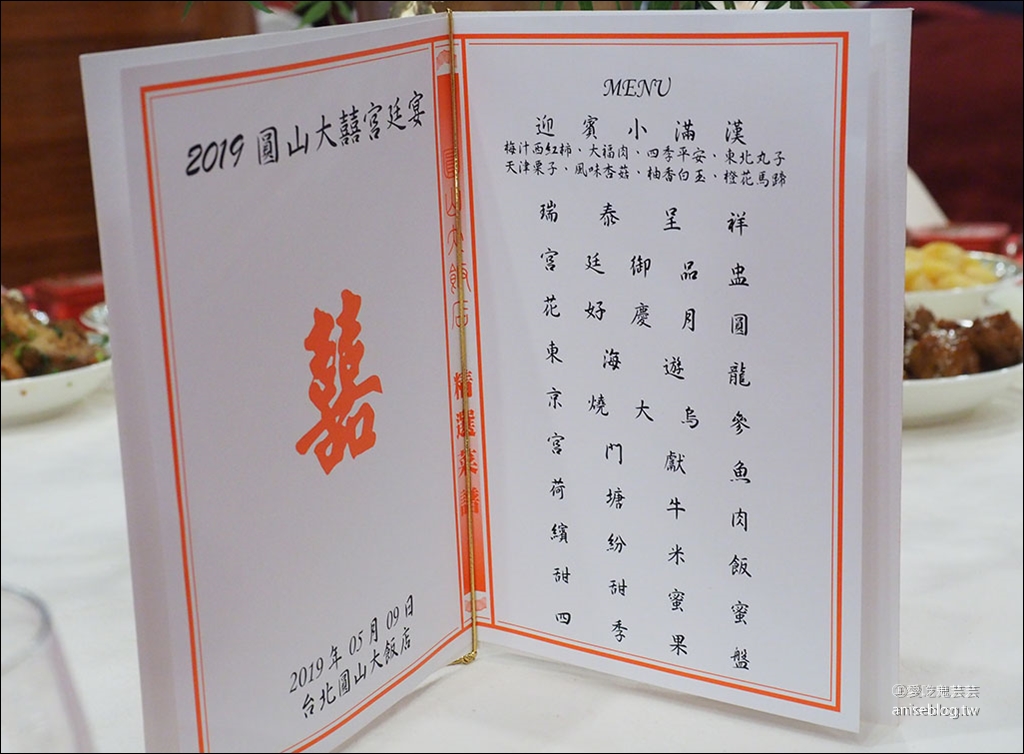 2019 圓山大囍宮廷宴
囍
2019 年 05 月 09 日
台北圓山大飯店
圓山大飯店
精選菜譜
MENU
迎賓小滿漢
梅汁西紅柿、大福肉、四季平安、東北丸子
天津栗子、風味杏菇、柚香白玉、橙花馬蹄
瑞泰呈祥
宮廷御品盅
花好慶月圓
東海遊龍
京燒大烏參
宮門獻魚
荷塘牛肉
繽紛米飯
甜甜蜜蜜
四季果盤
@愛吃鬼芸芸
aniseblog.tw